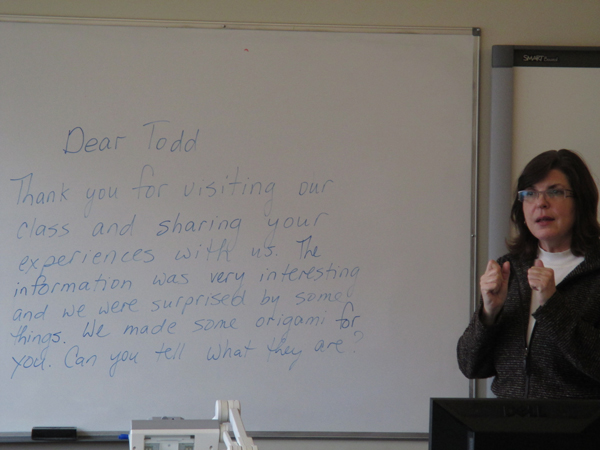 Dear Todd
Thank you for visiting our
class and sharing your
experiences with us. The
information was very interesting
and we were surprised by some
things. We made some origami for
you. Can you tell what they are?
SMART
DELL